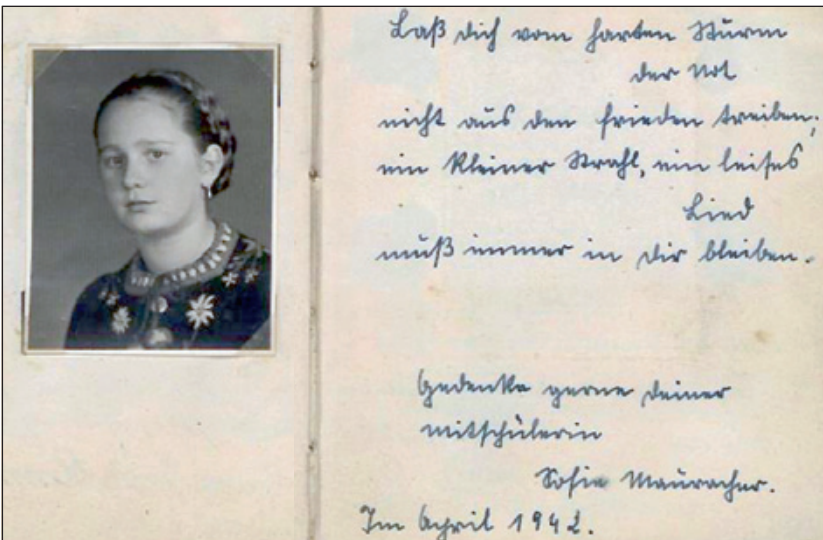 Laß dich vom harten Sturm
der Not
nicht aus dem Frieden treiben;
ein kleiner Strahl, ein leises
Lied
muß immer in dir bleiben.
Gedenke gerne deiner
Mitschülerin
Sofie Mauracher.
Im April 1942.